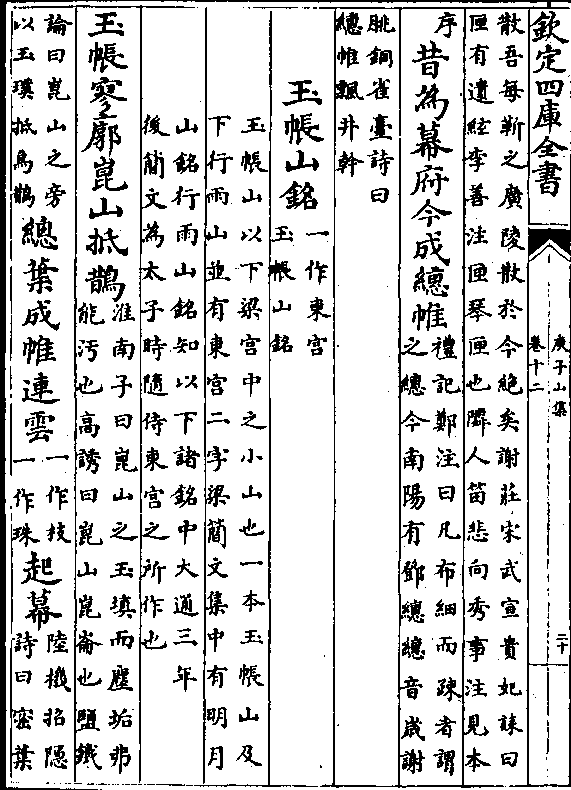 欽定四庫全書
庾子山集
卷十二
二十
散吾每靳之廣陵散於今絶矣謝莊宋武宣貴妃誄曰
匣有遺絃李善注匣琴匣也隣人笛悲向秀事注見本
序昔為幕府今成總帷禮記鄭注曰凡布細而疎者謂
之總今南陽有鄧總總音歲謝
朓銅雀臺詩曰
總帷飄井幹
玉帳山銘一作東宫
玉帳山銘
玉帳山以下梁宫中之小山也一本玉帳山及
下行雨山並有東宫二字梁簡文集中有明月
山銘行雨山銘知以下諸銘中大通三年
後簡文為太子時隨侍東宫之所作也
玉帳寥廓崑山抵鵲淮南子曰崑山之玉瑱而塵垢弗
能汚也高誘曰崑山崑崙也鹽鐵
論曰崑山之旁
以玉璞抵烏鵲總葉成帷連雲一作枝
一作珠起幕陸機招隠
詩曰密葉